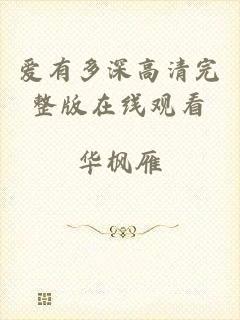 爱有多深高清完
整版在线观看
华枫雁